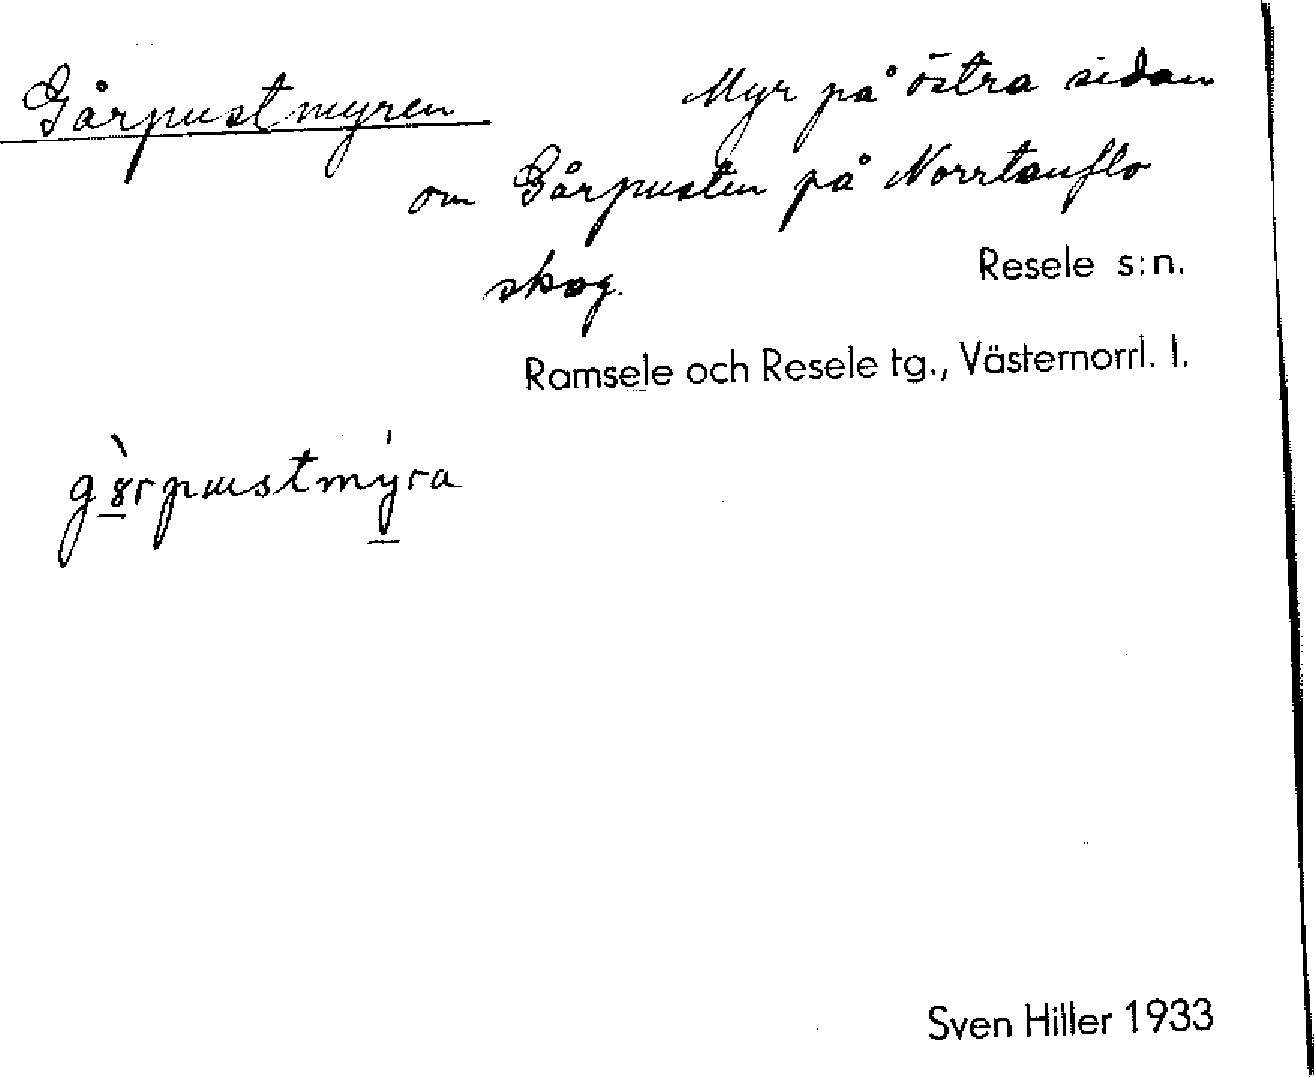 Gårpustmyren Myr på östra sidan
om Gårpusten på Norrtanflo
skog.
Resele s:n.
Ramsele och Resele tg., Västernorrl. l.
Sven Hiller 1933